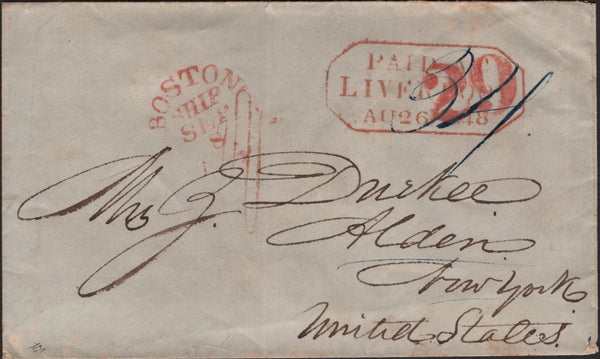 BOSTON
SHIP
SEP
9
PAID AT
LIVERPOOL
AU 26 1848
29
Mrs J. Durkee
Alden
New York
United States.